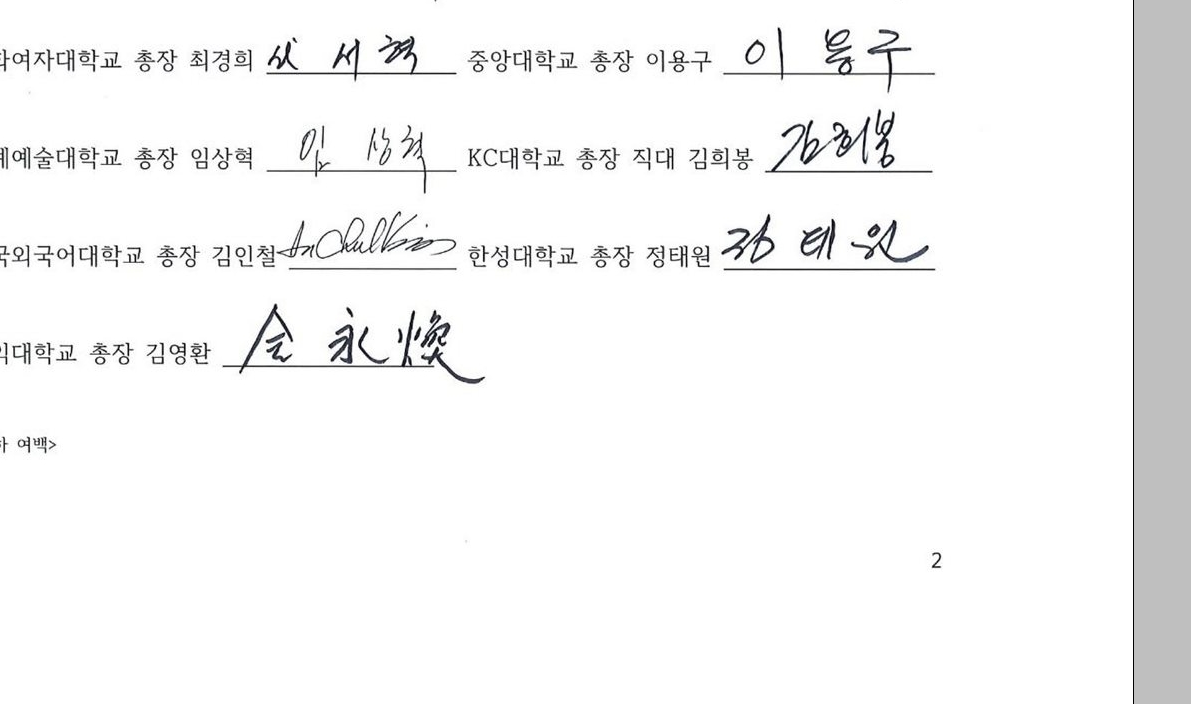 화여자대학교 총장 최경희 서혁 중앙대학교 총장 이용구 이용구
예예술대학교 총장 임상혁 임상혁 KC대학교 총장 직대 김희봉 김희봉
국외국어대학교 총장 김인철 In Chul Kim 한성대학교 총장 정태원 정태원
익대학교 총장 김영환 金永煥
하 여백>
2